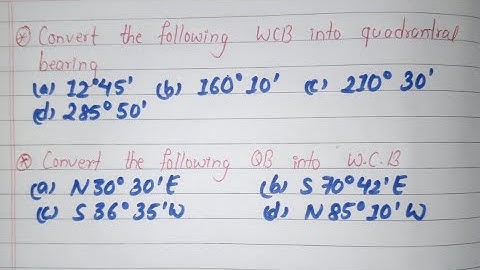 ⊛ Convert the following WCB into quadrantral
bearing
(a) 12°45' (b) 160°10' (c) 210° 30'
(d) 285° 50'
⊛ Convert the following QB into W.C.B
(a) N30° 30'E (b) S 70°42'E
(c) S 36° 35'W (d) N85°10'W